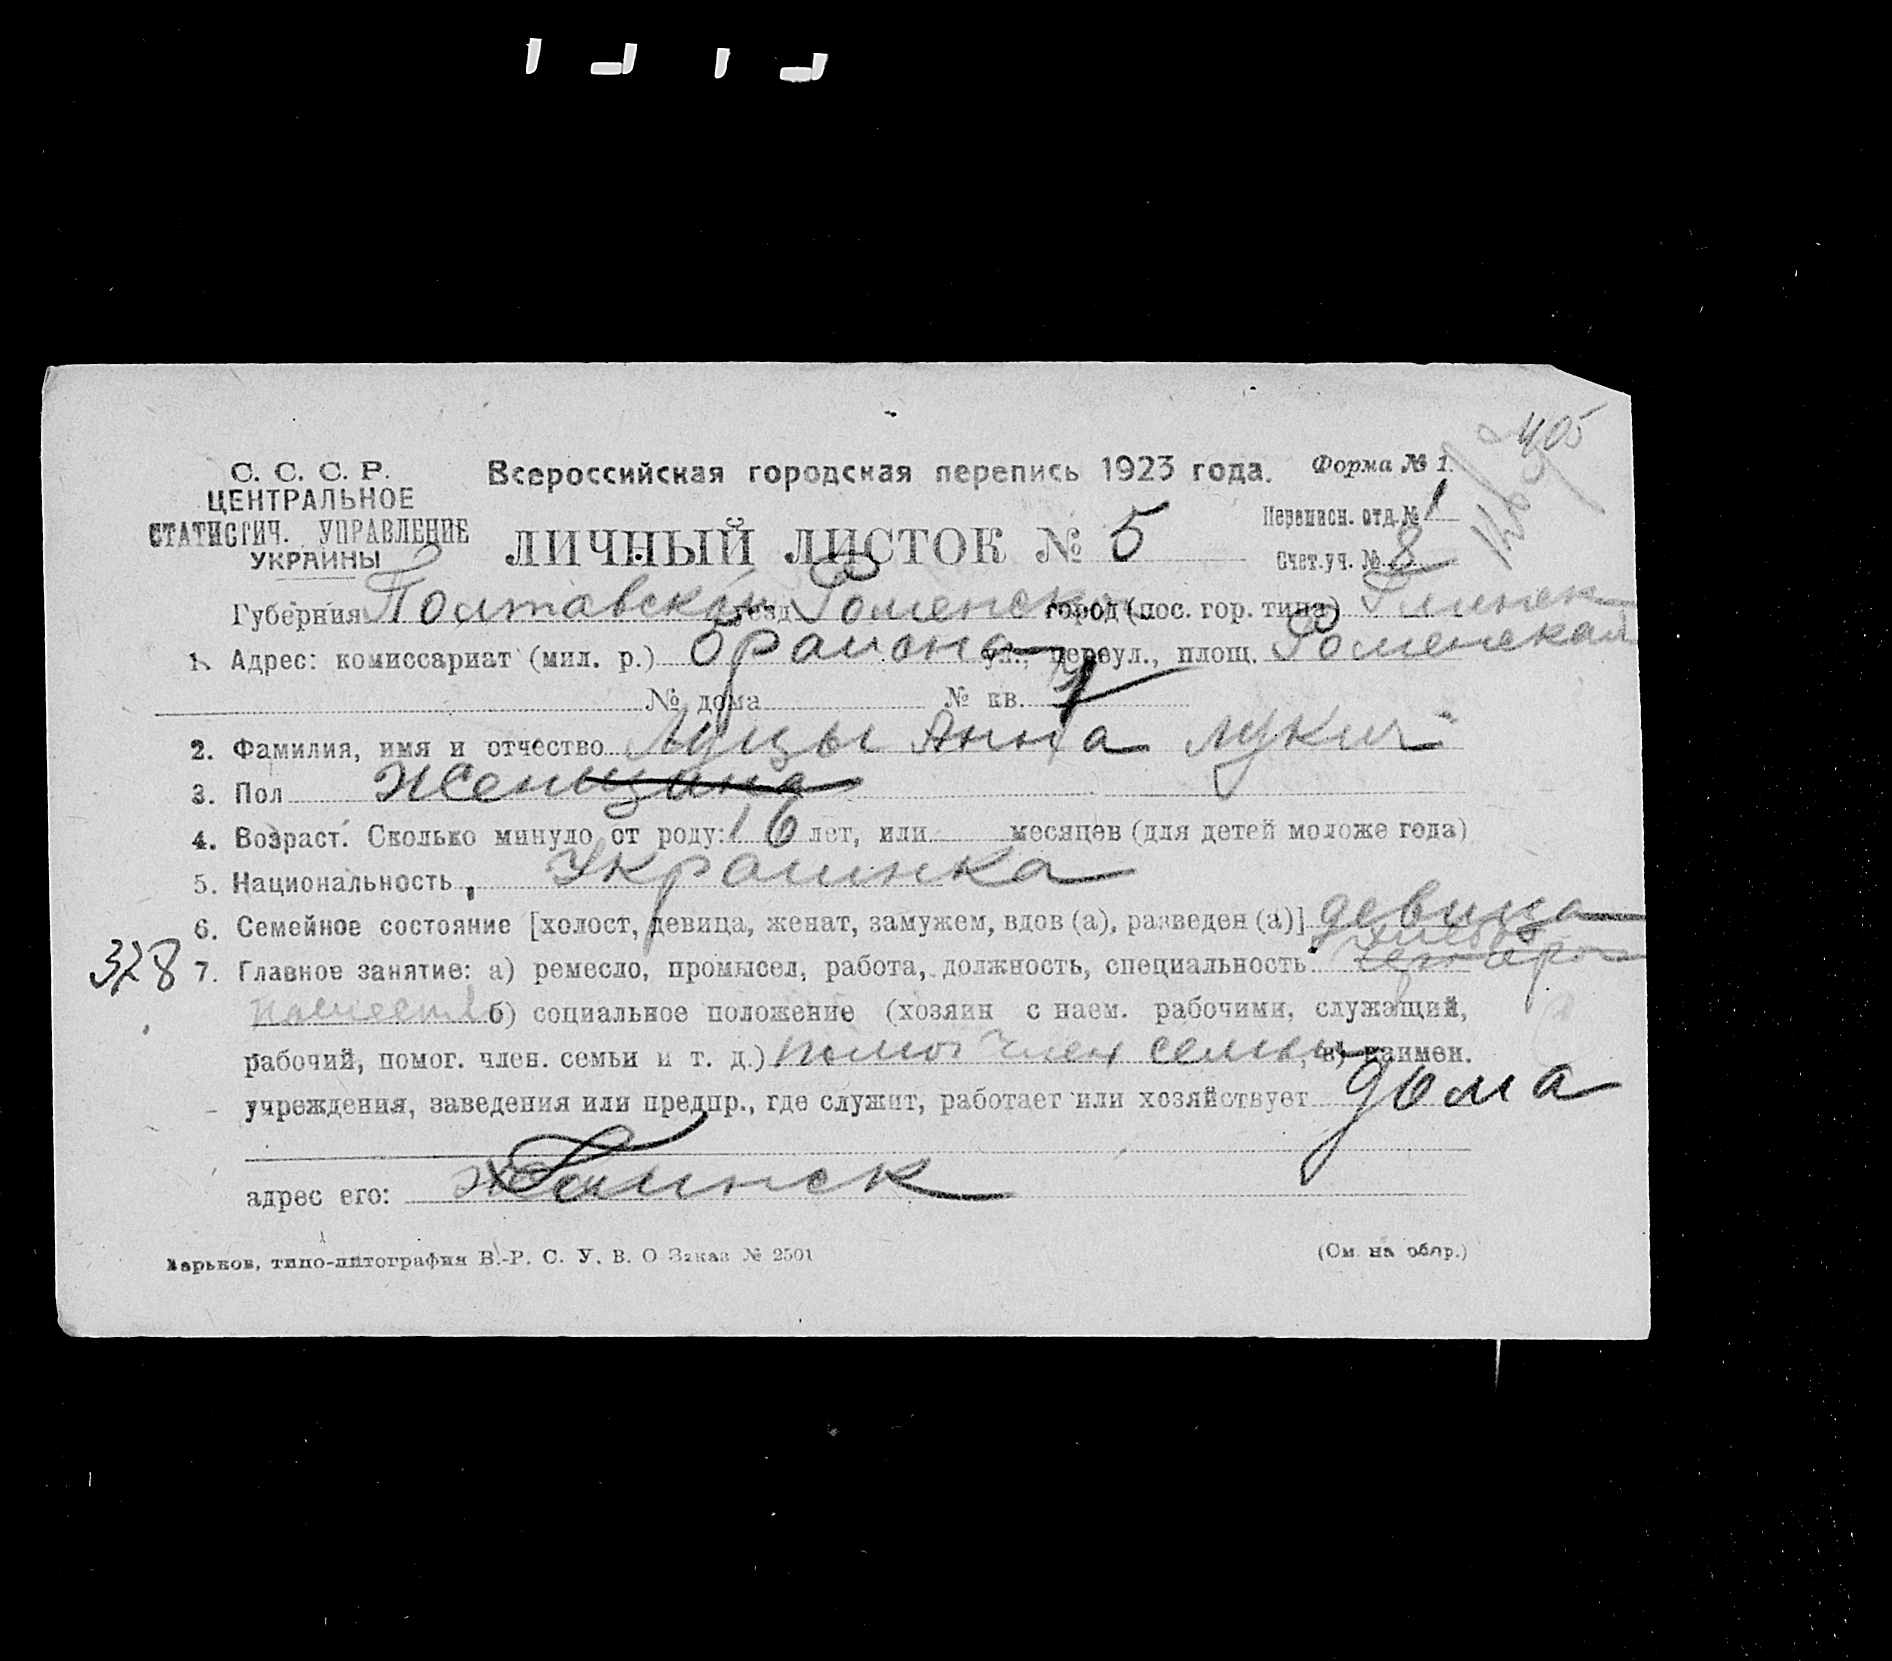 405
С. С. С. Р.
ЦЕНТРАЛЬНОЕ
СТАТИСТИЧ. УПРАВЛЕНИЕ
УКРАИНЫ
Всероссийская городская перепись 1923 года.
Форма № 1.
ЛИЧНЫЙ ЛИСТОК № 5
Переписн. отд. № 1
Счет. уч. № 8
Губерния Полтавской уезд Роменск город (пос. гор. типа) Глинск
1. Адрес: комиссариат (мил. р.) 6 района ул., переул., площ. Роменская
№ дома № кв.
2. Фамилия, имя и отчество Анна Лукич
3. Пол Женщина
4. Возраст. Сколько минуло от роду: 16 лет, или месяцев (для детей моложе года)
5. Национальность Украинка
6. Семейное состояние [холост, девица, женат, замужем, вдов (а), разведен (а)] девица
328 7. Главное занятие: а) ремесло, промысел, работа, должность, специальность
б) социальное положение (хозяин с наем. рабочими, служащий,
рабочий, помог. член. семьи и т. д.) помог член семьи, в) наимен.
учреждения, заведения или предпр., где служит, работает или хозяйствует дома
адрес его: Глинск
Харьков, типо-литография В.-Р. С. У. В. О Заказ № 2501
(См. на обор.)